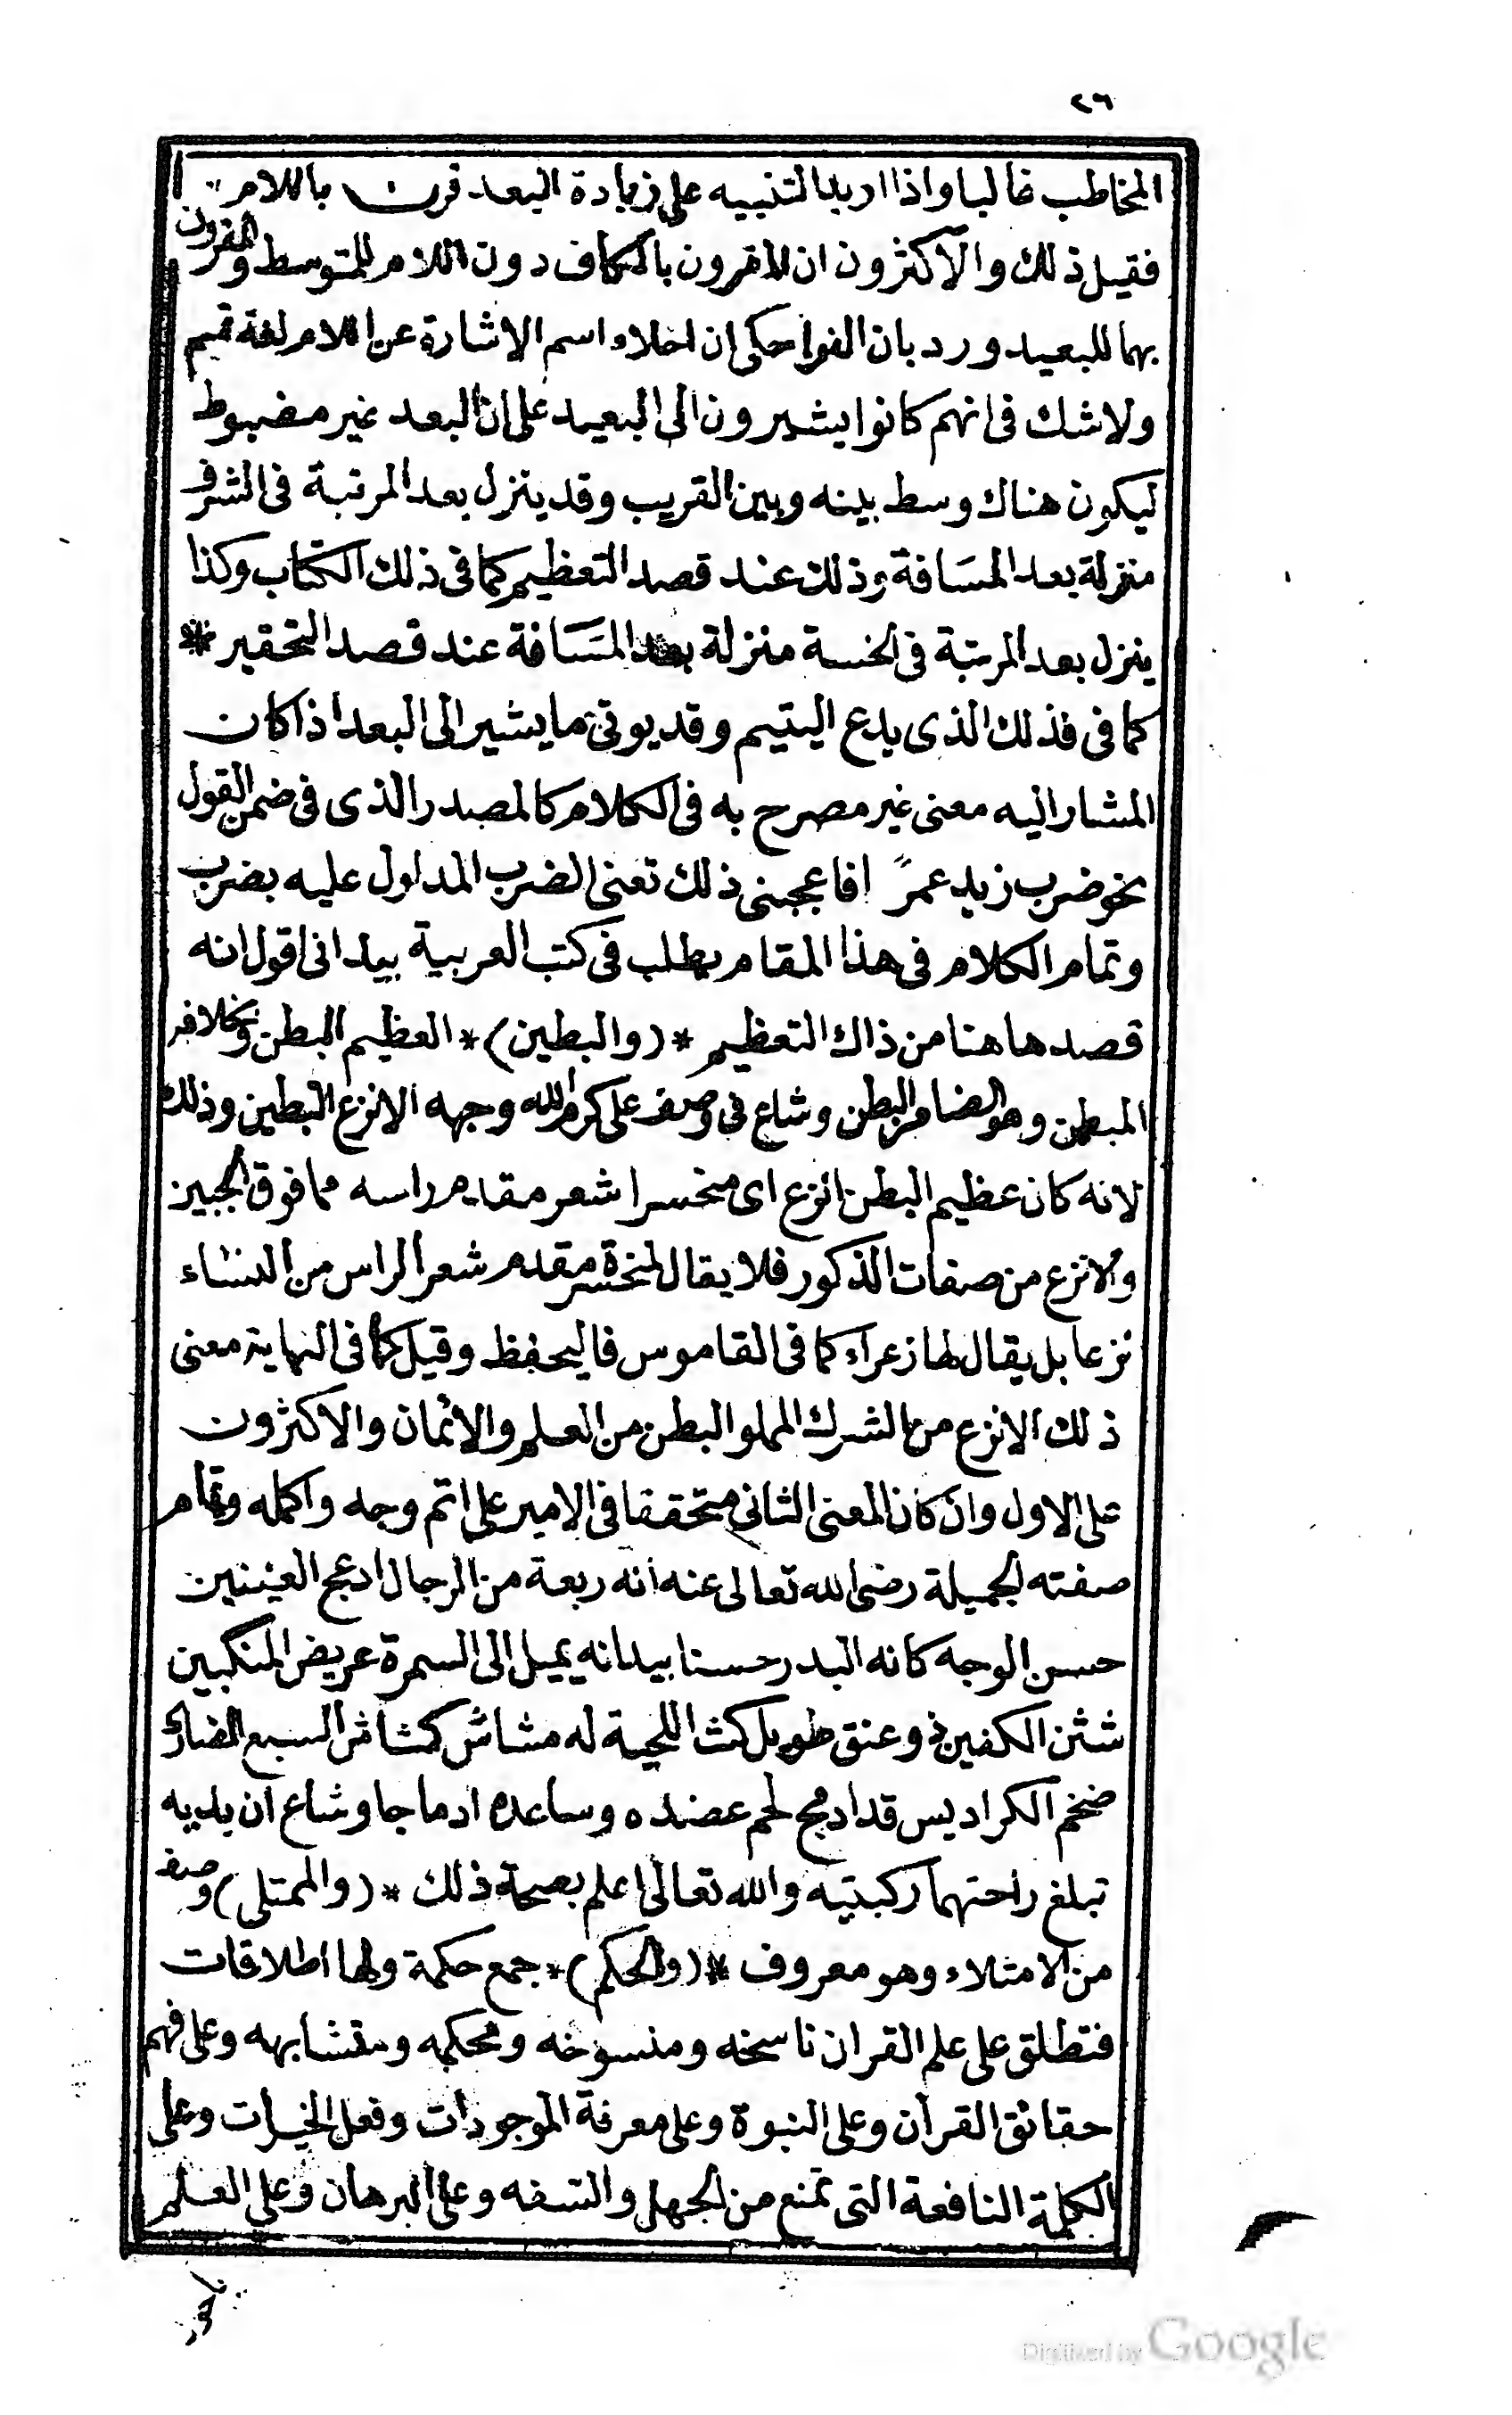 ٢٦
المخاطب غالبا واذا اريد التنبيه على زيادة البعد قرن باللام
فقيل ذلك والاكثرون ان المقرون بالكاف دون اللام للمتوسط والمقرون
بهما للبعيد ورد بان الفرا حكى ان اخلاء اسم الاشارة عن اللام لغة تميم
ولا شك فى انهم كانوا يشيرون الى البعيد على ان البعد غير مضبوط
ليكون هناك وسط بينه وبين القريب وقد ينزل بعد المرتبة فى الشرف
منزلة بعد المسَافة وذلك عند قصد التعظيم كما فى ذلك الكتاب وكذا
ينزل بعد المرتبة فى الخسة منزلة بعد المسَافة عند قصد التحقير *
كما فى فذلك الذى يدع اليتيم وقد يوتى بما يشير الى البعد اذا كان
المشار اليه معنى غير مصرح به فى الكلام كالمصدر الذى فى ضمن القول
نحو ضرب زيد عمرً افاعجبنى ذلك تعنى الضرب المدلول عليه بضرب
وتمام الكلام فى هذا المقام يطلب فى كتب العربية بيد انى اقول انه
قصد هاهنا من ذاك التعظيم * (والبطين) * العظيم البطن وبخلافه
المبطن وهو الضامر البطن وشاع فى وصف على كرم الله وجهه الانزع البطين وذلك
لانه كان عظيم البطن انزع اى منحسرا شعر مقدم راسه مما فوق الجبين
والانزع من صفات الذكور فلا يقال لمنحسرة مقدم شعر الراس من النساء
نزعا بل يقال لها زعراء كما فى القاموس فاليحفظ وقيل كما فى النهاية معنى
ذلك الانزع من الشرك المملو البطن من العلم والائمان والاكثرون
على الاول وان كان المعنى الثانى متحققا فى الامير على اتم وجه واكمله وتمام
صفته الجميلة رضى الله تعالى عنه انه ربعة من الرجال ادعج العينين
حسن الوجه كانه البدر حسنا بيد انه يميل الى السمرة عريض المنكبين
شثن الكفين ذو عنق طويل كث اللحية له مشاش كمشاش السبع الضارى
ضخم الكراديس قد ادمج لحم عضده وساعده ادماجا وشاع ان يديه
تبلغ راحتهما ركبتيه والله تعالى اعلم بصحة ذلك * (والممتلى) وصف
من الامتلاء وهو معروف * (والحكم) * جمع حكمة ولها اطلاقات
فتطلق على علم القران ناسخه ومنسوخه ومحكمه ومتشابهه وعلى فهم
حقائق القرآن وعلى النبوة وعلى معرفة الموجودات وفعل الخيرات وعلى
الكلمة النافعة التى تمنع من الجهل والسفه وعلى البرهان وعلى العلم
Digitized by Google